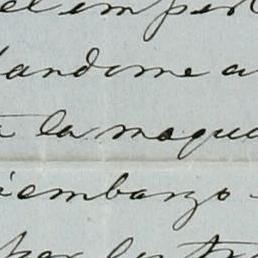 el emper
dandome a
la maqui
iembargo
por los tr